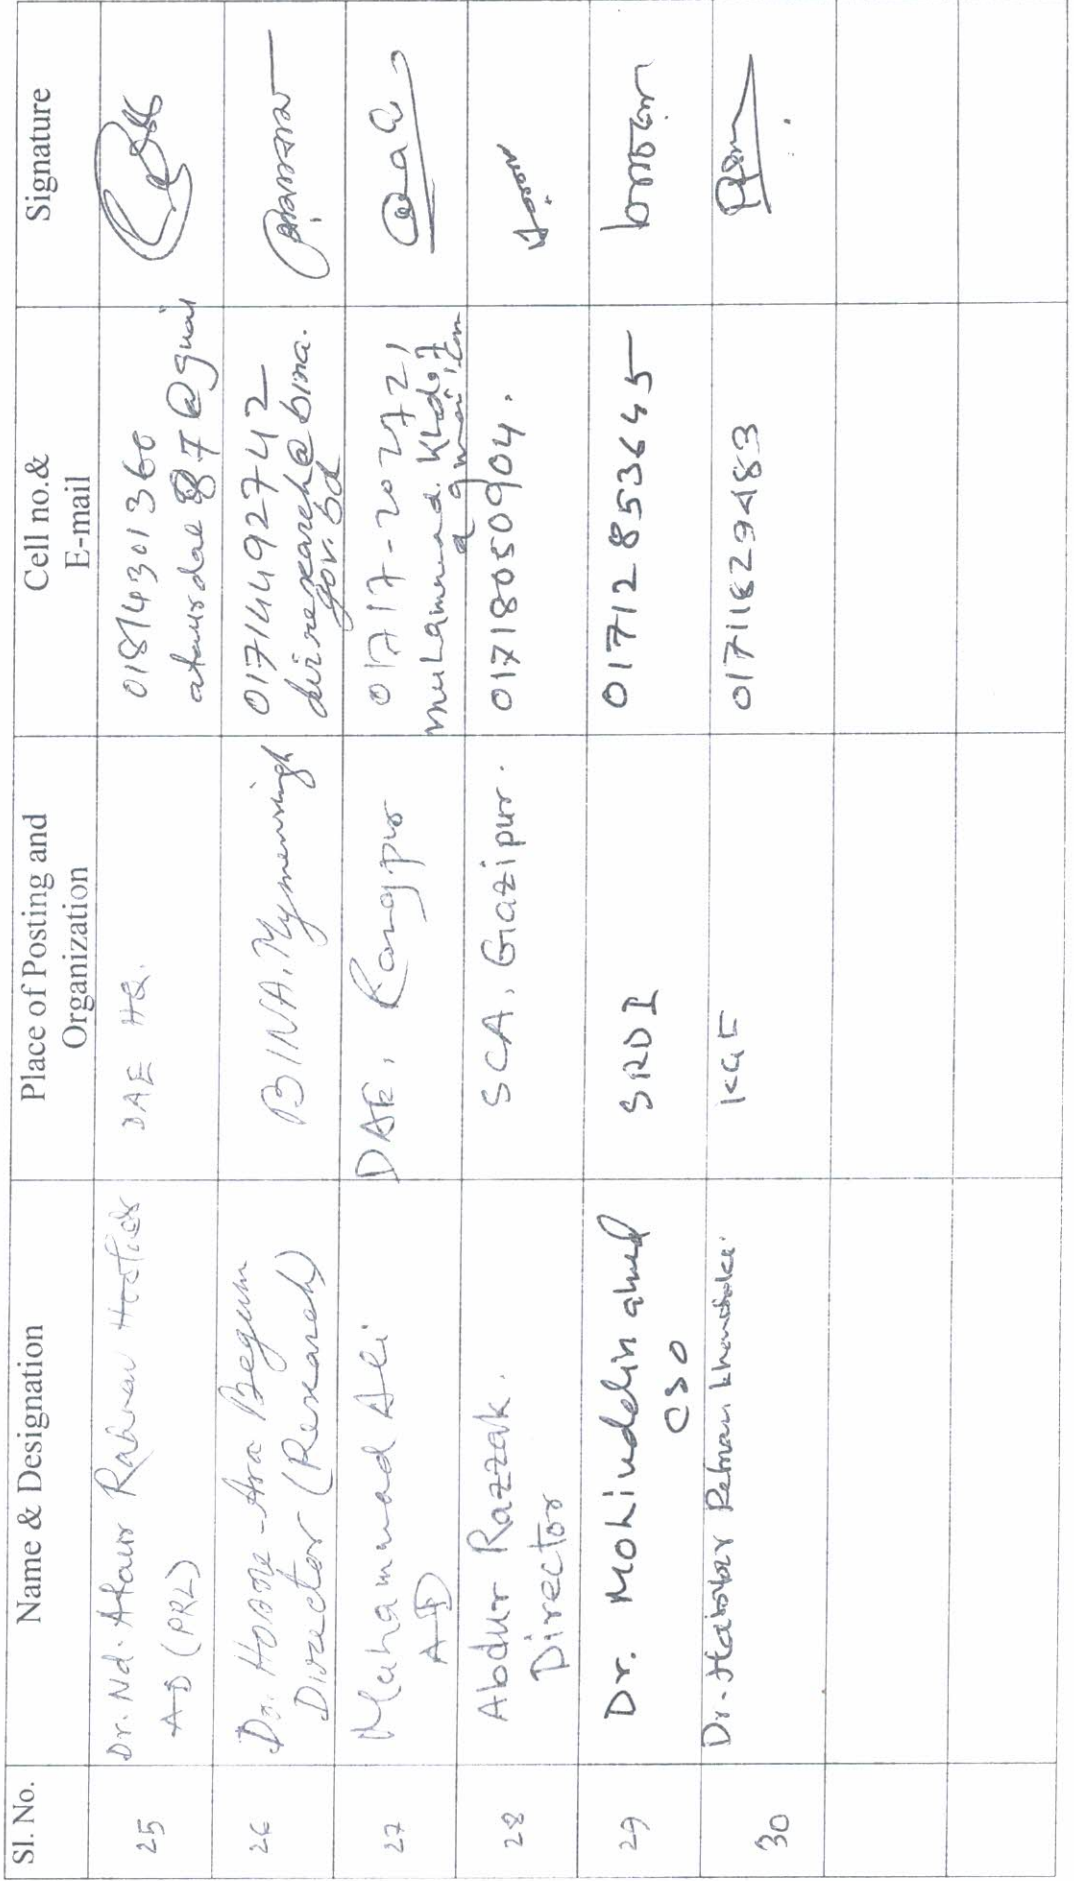 Sl. No.
Name & Designation
Place of Posting and
Organization
Cell no.&
E-mail
Signature
25
Dr. Md. Ataur Rahman
AD (PRL)
DAE HQ.
01814301366
ataurdae87@gmail
26
Dr. Hosne-Ara Begum
Director (Research)
BINA, Mymensingh
01714492742
dirresearch@bina.
gov.bd
27
Muhammad Ali
AD
DAE, Rangpur
01717-202721
28
Abdur Razzak.
Director
SCA, Gazipur.
01718050904.
29
Dr. Mohiuddin ahmed
CSO
SRDI
01712853645
30
Dr. Habibur Rahman Khandaker
KGF
01711829483